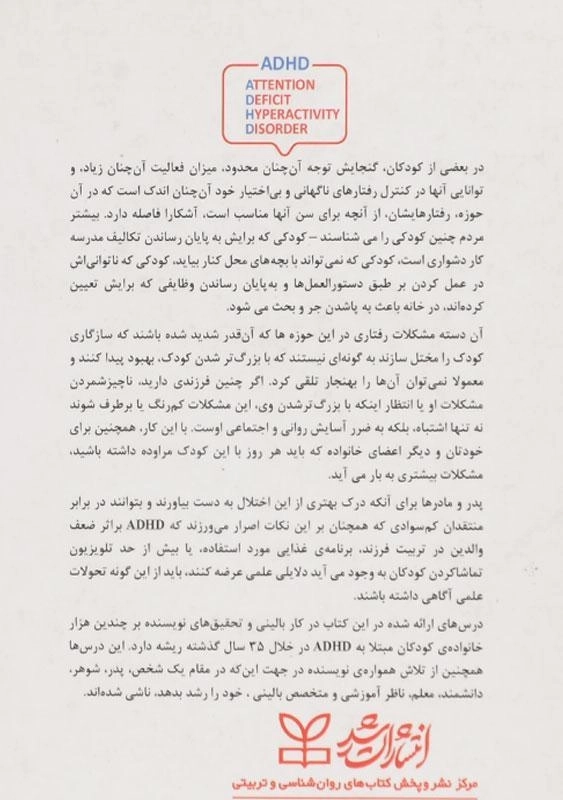 ADHD
ATTENTION
DEFICIT
HYPERACTIVITY
DISORDER
در بعضی از کودکان، گنجایش توجه آن‌چنان محدود، میزان فعالیت آن‌چنان زیاد، و
توانایی آنها در کنترل رفتارهای ناگهانی و بی‌اختیار خود آن‌چنان اندک است که در آن
حوزه، رفتارهایشان، از آنچه برای سن آنها مناسب است، آشکارا فاصله دارد. بیشتر
مردم چنین کودکی را می شناسند – کودکی که برایش به پایان رساندن تکالیف مدرسه
کار دشواری است، کودکی که نمی‌تواند با بچه‌های محل کنار بیاید، کودکی که ناتوانی‌اش
در عمل کردن بر طبق دستورالعمل‌ها و به‌پایان رساندن وظایفی که برایش تعیین
کرده‌اند، در خانه باعث به پاشدن جر و بحث می شود.
آن دسته مشکلات رفتاری در این حوزه ها که آن‌قدر شدید شده باشند که سازگاری
کودک را مختل سازند به گونه‌ای نیستند که با بزرگ‌تر شدن کودک، بهبود پیدا کنند و
معمولا نمی‌توان آن‌ها را بهنجار تلقی کرد. اگر چنین فرزندی دارید، ناچیزشمردن
مشکلات او یا انتظار اینکه با بزرگ‌ترشدن وی، این مشکلات کم‌رنگ یا برطرف شوند
نه تنها اشتباه، بلکه به ضرر آسایش روانی و اجتماعی اوست. با این کار، همچنین برای
خودتان و دیگر اعضای خانواده که باید هر روز با این کودک مراوده داشته باشید،
مشکلات بیشتری به بار می آید.
پدر و مادرها برای آنکه درک بهتری از این اختلال به دست بیاورند و بتوانند در برابر
منتقدان کم‌سوادی که همچنان بر این نکات اصرار می‌ورزند که ADHD براثر ضعف
والدین در تربیت فرزند، برنامه‌ی غذایی مورد استفاده، یا بیش از حد تلویزیون
تماشاکردن کودکان به وجود می آید دلایلی علمی عرضه کنند، باید از این گونه تحولات
علمی آگاهی داشته باشند.
درس‌های ارائه شده در این کتاب در کار بالینی و تحقیق‌های نویسنده بر چندین هزار
خانواده‌ی کودکان مبتلا به ADHD در خلال ۳۵ سال گذشته ریشه دارد. این درس‌ها
همچنین از تلاش همواره‌ی نویسنده در جهت این‌که در مقام یک شخص، پدر، شوهر،
دانشمند، معلم، ناظر آموزشی و متخصص بالینی ، خود را رشد بدهد، ناشی شده‌اند.
انتشارات رشد
مرکز نشر و پخش کتاب‌های روان‌شناسی و تربیتی